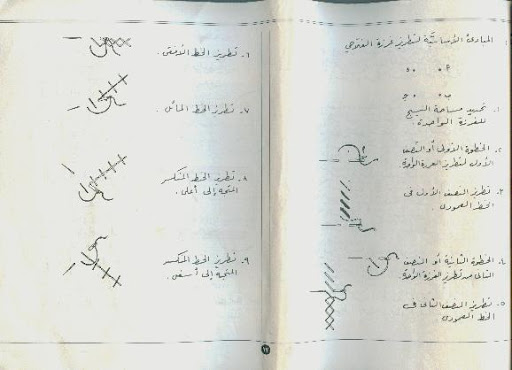 المبادئ الأساسيّة لتطريز غرزة الفلاحي
١. تحديد مساحة النسيج
للغرزة الواحدة.
٢. الخطوة الأولى أو النصف
الأول لتطريز الغرزة الواحدة
٣. تطريز النصف الأول في
الخط العمودي
٤. الخطوة الثانية أو النصف
الثاني من تطريز الغرزة الواحدة
٥. تطريز النصف الثاني في
الخط العمودي
٦. تطريز الخط الأفقي.
٧. تطريز الخط المائل.
٨. تطريز الخط المتكسر
المتجه إلى أعلى.
٩. تطريز الخط المتكسر
المتجه إلى أسفل.